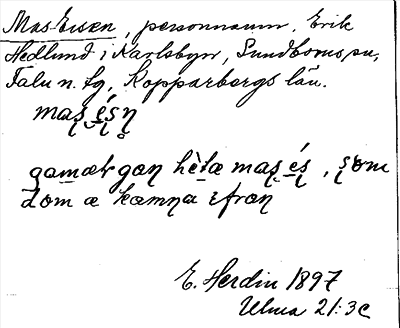 Mas Eisen, personnamn, Erik
Hedlund i Karlsbyn, Sundborns sn,
Falu n. tg, Kopparbergs län.
mas̨ és̨n̥
gamætgæn hètæ mas̨ és̨, s̨om
dom æ kæmna ifrøn
E. Herdin 1897
Ulma 21:3c